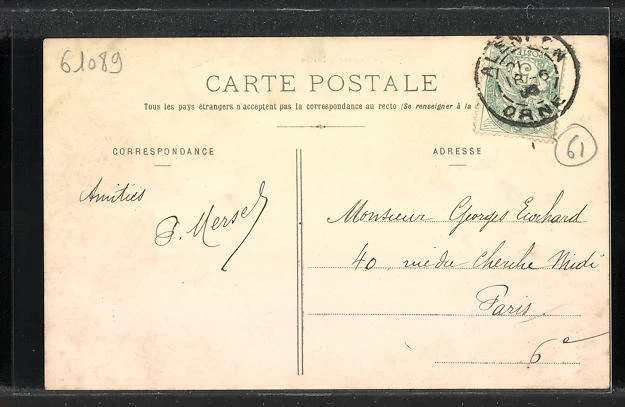 61089
CARTE POSTALE
Tous les pays étrangers n'acceptent pas la correspondance au recto (Se renseigner à la
ALENÇON
ORNE
61
CORRESPONDANCE
ADRESSE
Amitiés
Monsieur Georges
40, rue du Cherche Midi
Paris
6e